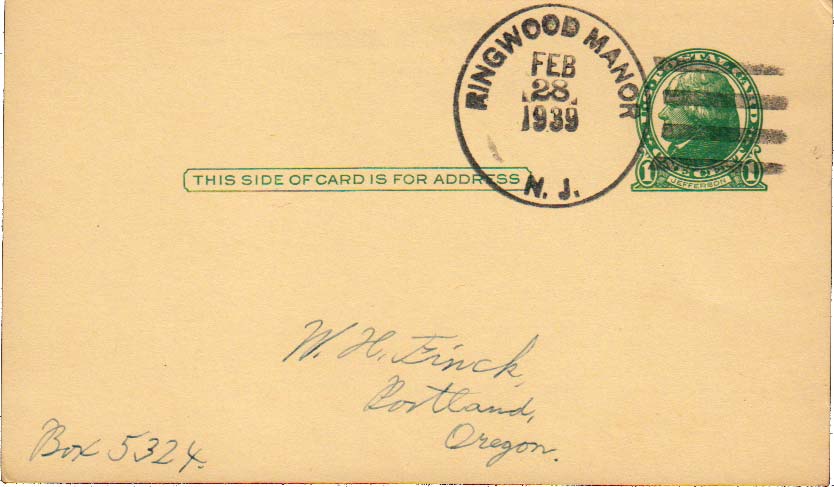 RINGWOOD MANOR
FEB
28
1939
N. J.
U.S. POSTAL CARD
ONE CENT
1 JEFFERSON 1
THIS SIDE OF CARD IS FOR ADDRESS
W. H. Finck,
Portland,
Oregon.
Box 5324.